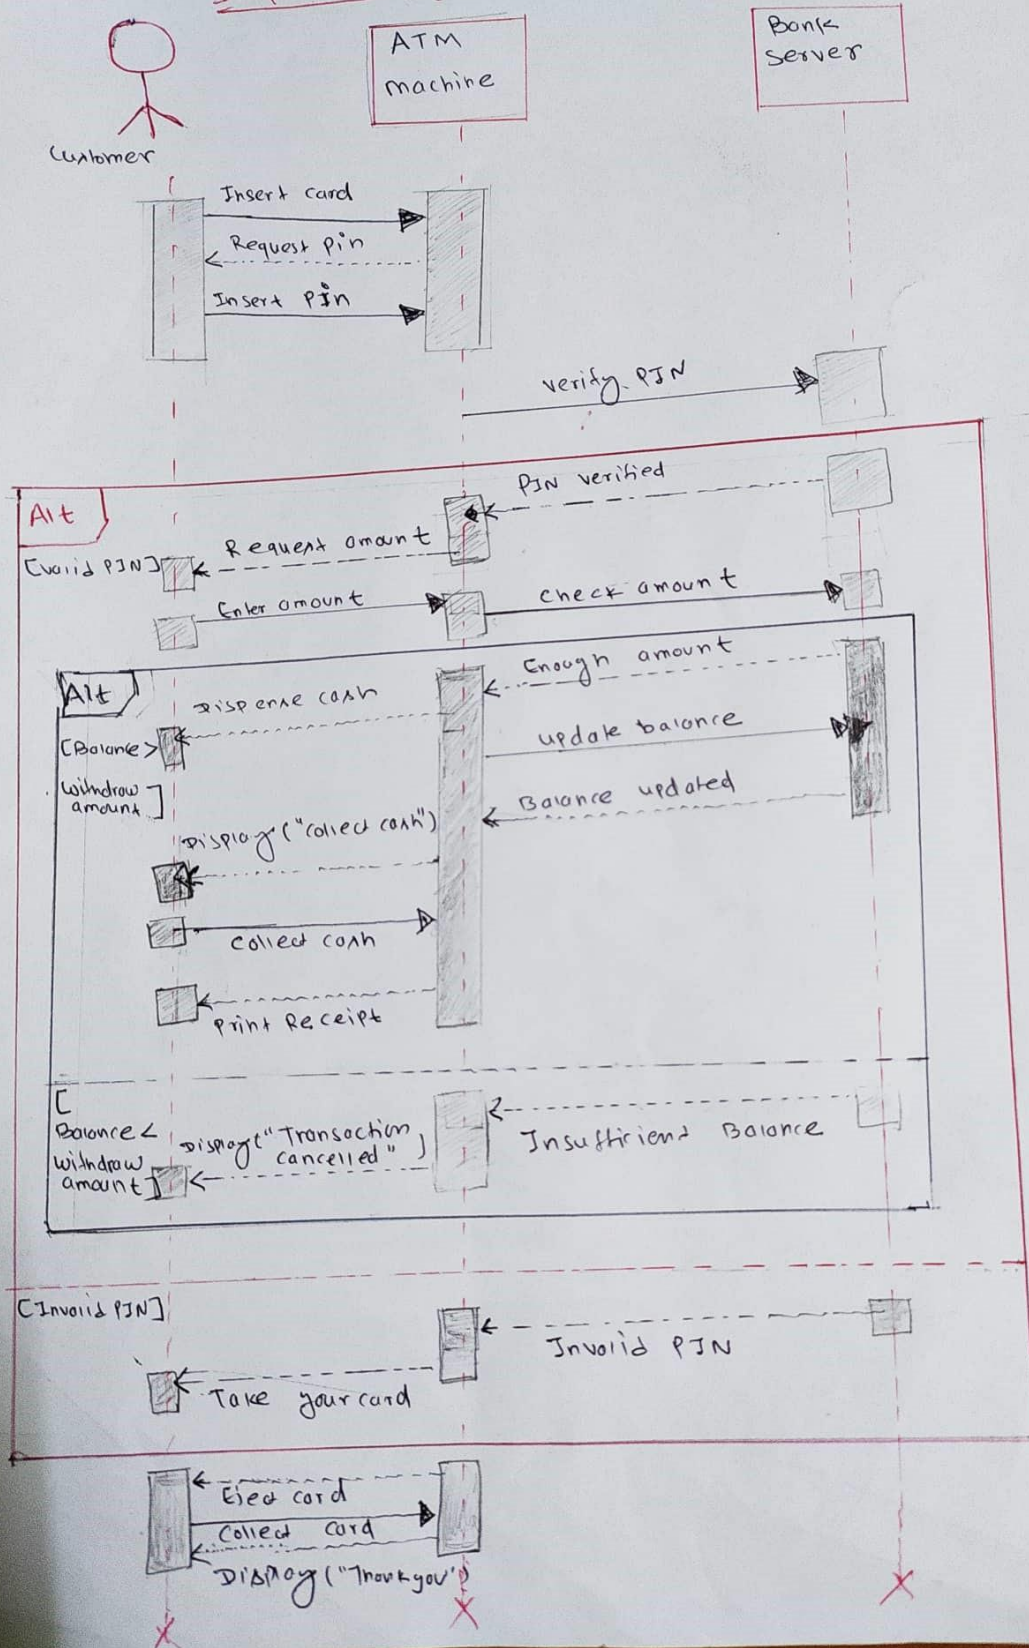 ATM
machine
Bank
server
Customer
Insert card
Request pin
Insert PIN
verify PIN
Alt
PIN verified
Request amount
[valid PIN]
Enter amount
check amount
Alt
Enough amount
Dispense cash
[Balance >
withdraw
amount]
update balance
Balance updated
Display("collect cash")
collect cash
Print Receipt
[
Balance <
withdraw
amount]
Display("Transaction
cancelled")
Insufficient Balance
[Invalid PIN]
Invalid PIN
Take your card
Eject card
Collect card
Display("Thank you")